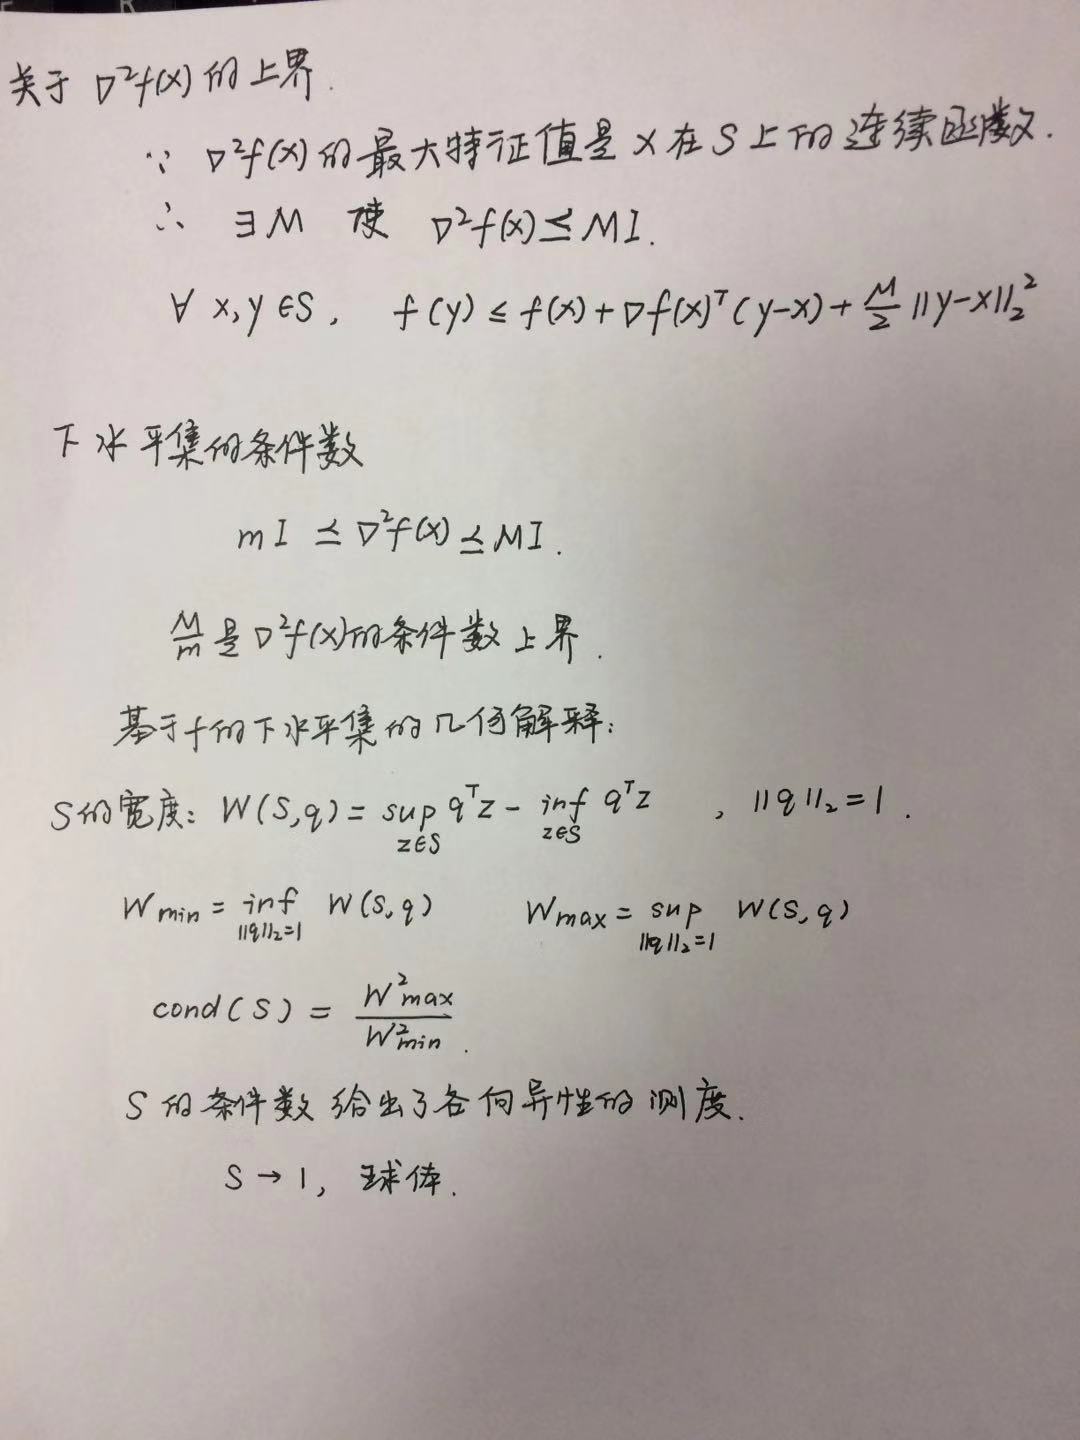 关于 ∇²f(x) 的上界.
∵ ∇²f(x) 的最大特征值是 x 在 S 上的连续函数.
∴ ∃M 使 ∇²f(x) ⪯ MI.
∀ x,y ∈S, f(y) ≤ f(x) + ∇f(x)ᵀ(y-x) + M/2 ||y-x||₂²
下水平集的条件数
mI ⪯ ∇²f(x) ⪯ MI.
M/m 是 ∇²f(x) 的条件数上界.
基于f的下水平集的几何解释:
S的宽度: W(S,q) = sup_{z∈S} qᵀz - inf_{z∈S} qᵀz , ||q||₂ = 1.
Wmin = inf_{||q||₂=1} W(S,q) Wmax = sup_{||q||₂=1} W(S,q)
cond(S) = W²max / W²min.
S 的条件数给出了各向异性的测度.
S → 1, 球体.